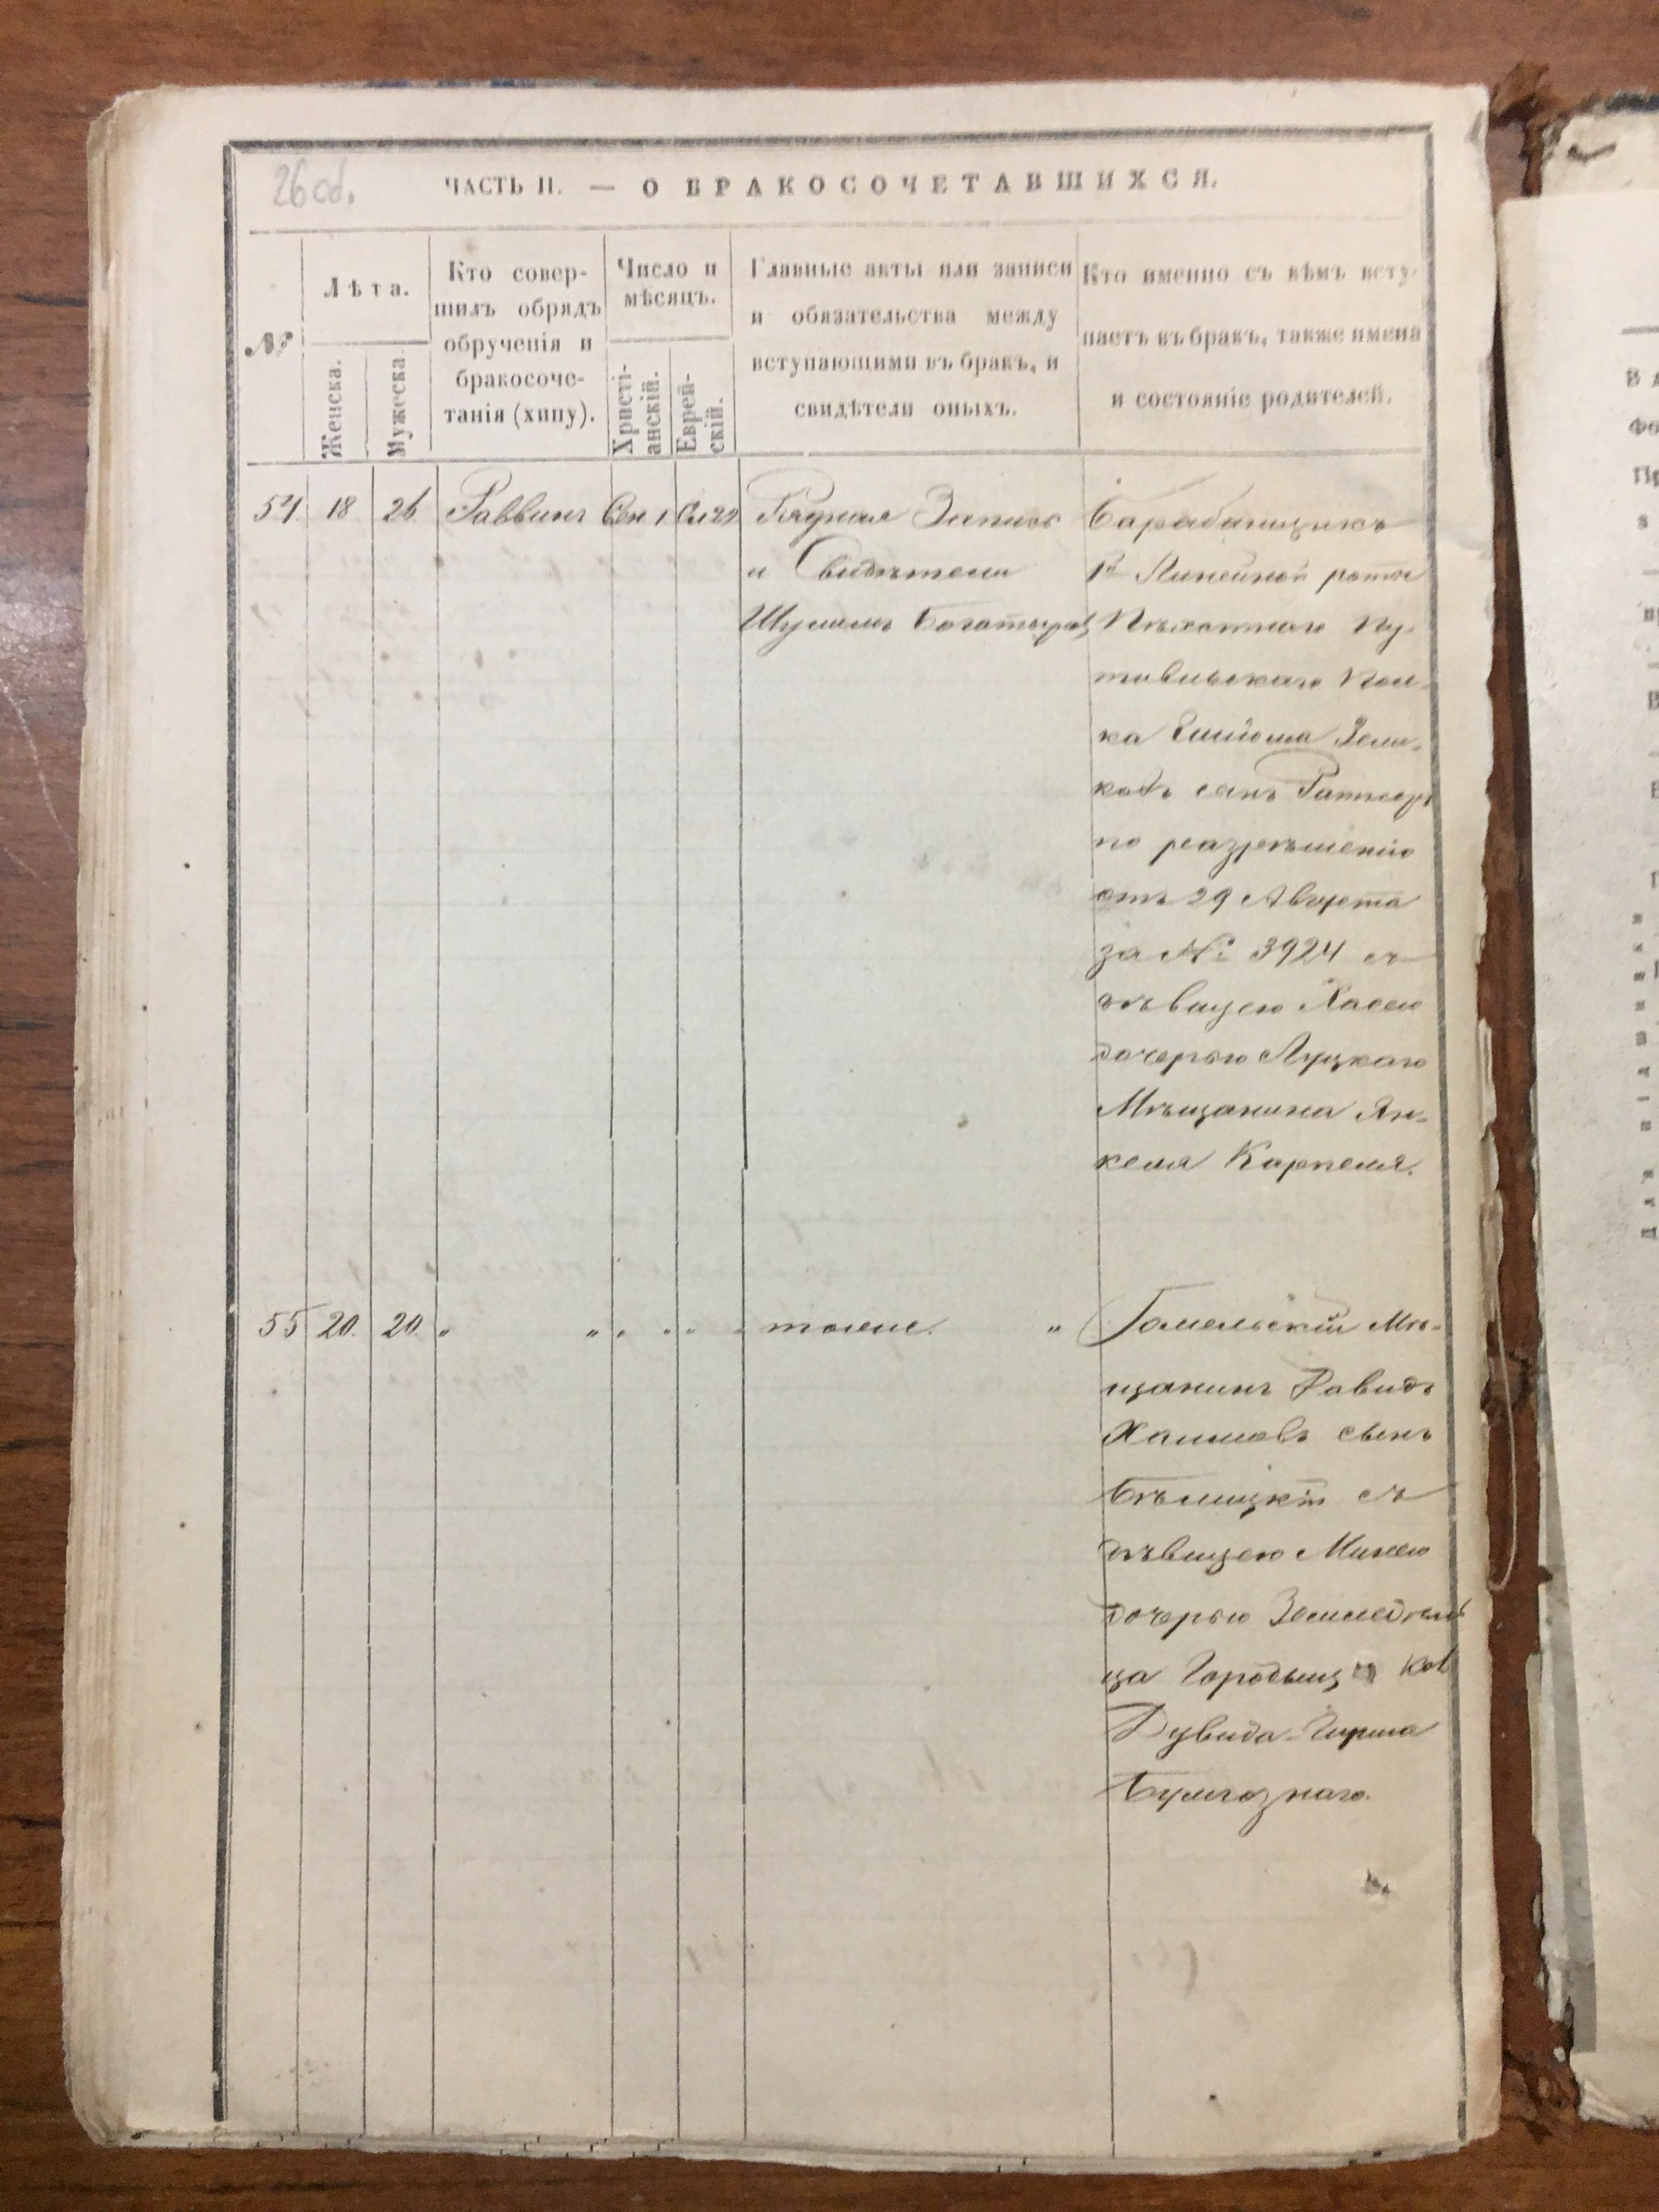 26 об.
ЧАСТЬ II. — О БРАКОСОЧЕТАВШИХСЯ.
№
Лѣта.
Женска.
Мужеска.
Кто совер-
шилъ обрядъ
обрученія и
бракосоче-
танія (хипу).
Число и
мѣсяцъ.
Христі-
анскій.
Еврей-
скій.
Главные акты или записи
и обязательства между
вступающими въ бракъ, и
свидѣтели оныхъ.
Кто именно съ кѣмъ всту-
паетъ въ бракъ, также имена
и состояніе родителей.
54 18 26 Раввинъ Сен. 1 Ел 22 Рядная Запись Барабанщикъ
и Свидѣтели 1й Линейной роты
Шулимъ Пѣхотнаго Пу-
тивльскаго Пол-
ка Зели-
ковъ сынъ Ратнеръ
по разрѣшенію
отъ 29 Августа
за № 3924 съ
дѣвицею Хасею
дочерью Луцкаго
Мѣщанина Ян-
келя Карпеля.
55 20. 20. „ „ тоже. „ Гомельскій Мѣ-
щанинъ Давидъ
Хаимовъ сынъ
Бѣлицкій съ
дѣвицею Минею
дочерью Земледѣль
ца
Дувида-Гирша